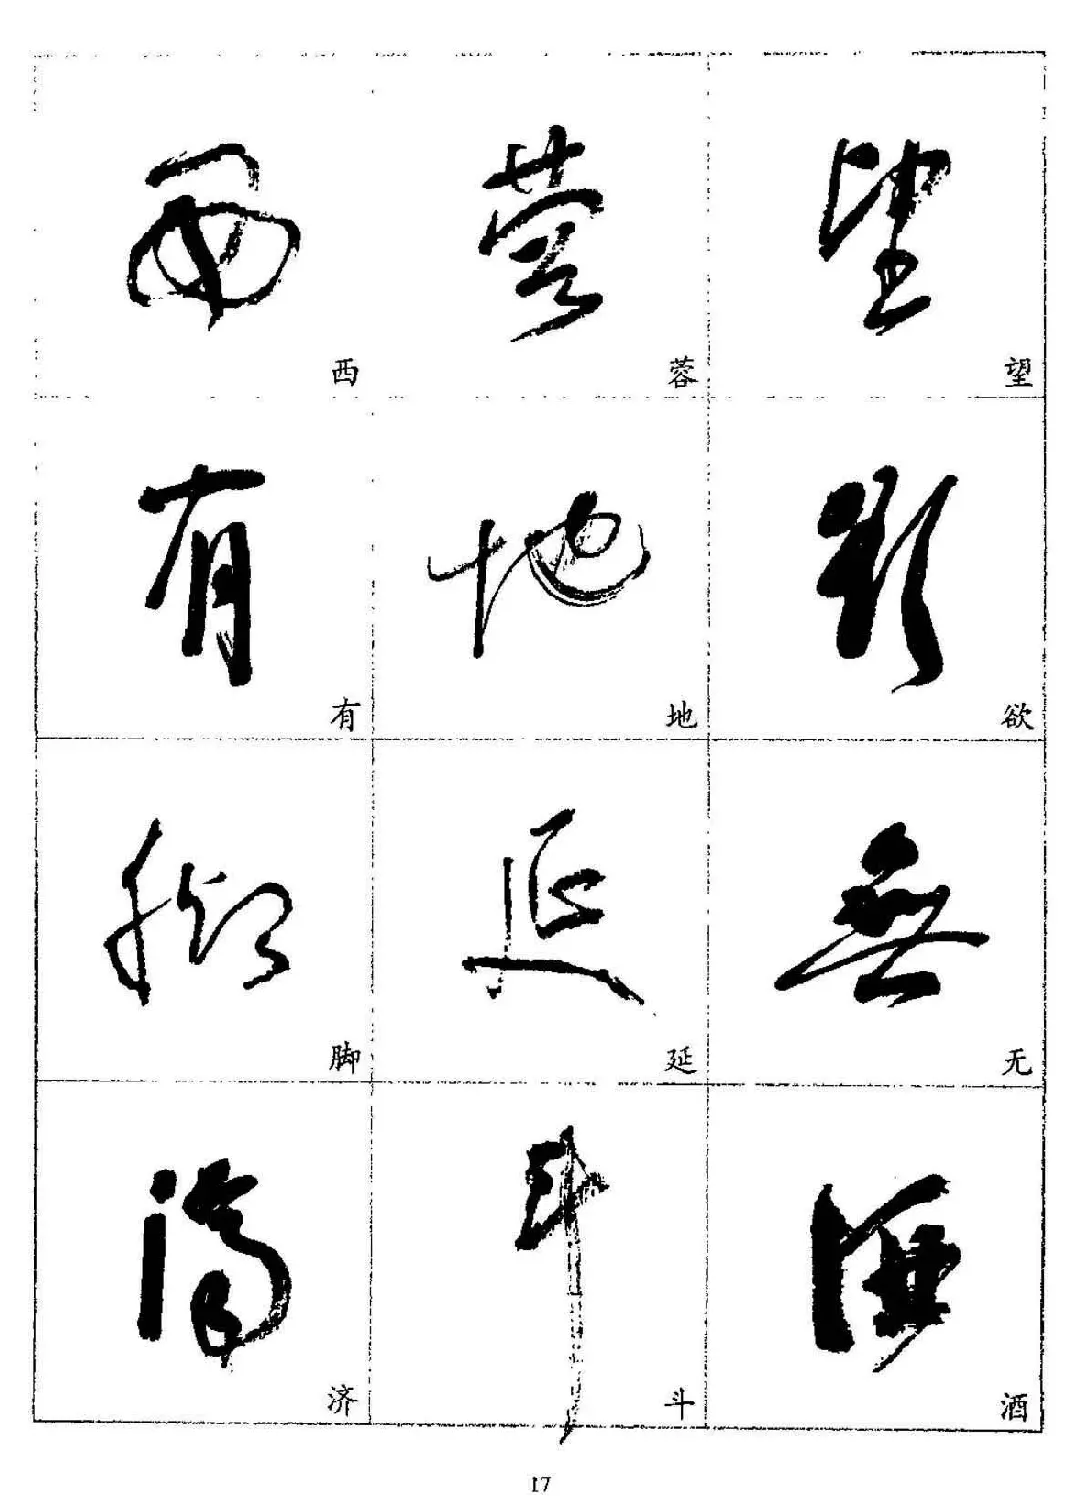 西 蓉 望
有 地 欲
脚 延 无
济 斗 酒
17